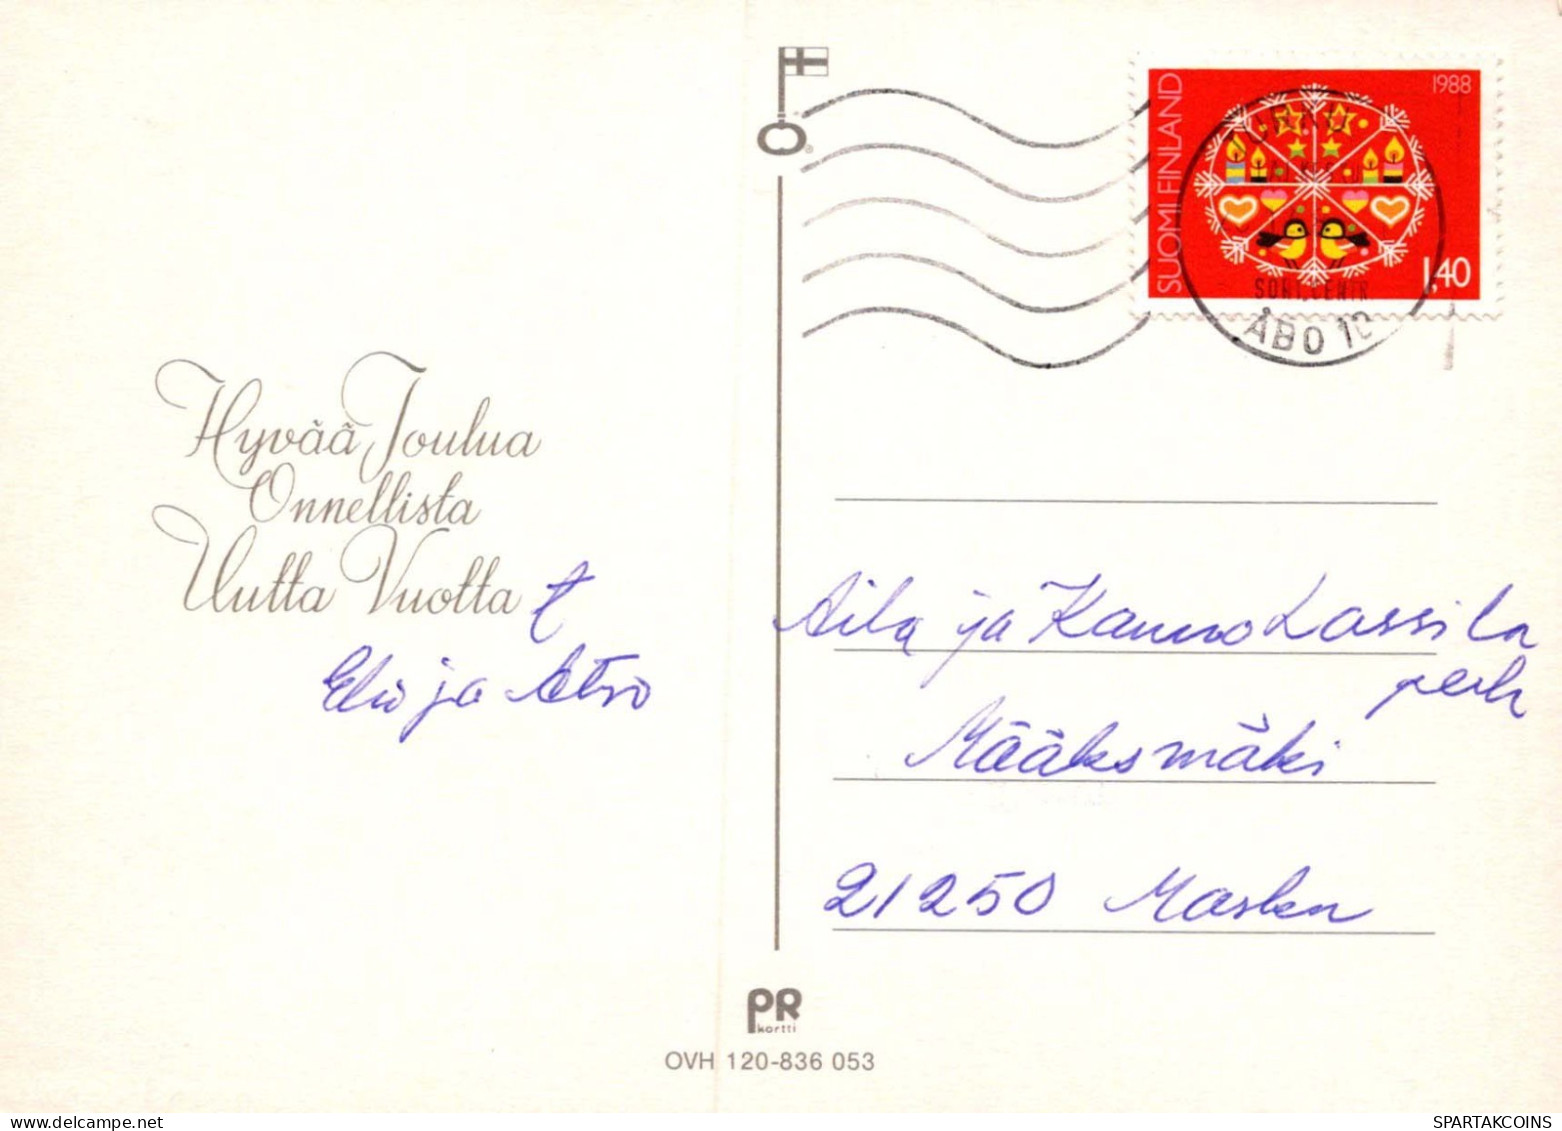 Hyvää Joulua
Onnellista
Uutta Vuotta
t
ja
SUOMI FINLAND
1988
1,40
TURKU
ÅBO 10
Aila ja Kauno Lassila
perh
Määksmäki
21250 Masku
PR
kortti
OVH 120-836 053
SPARTAKCOINS